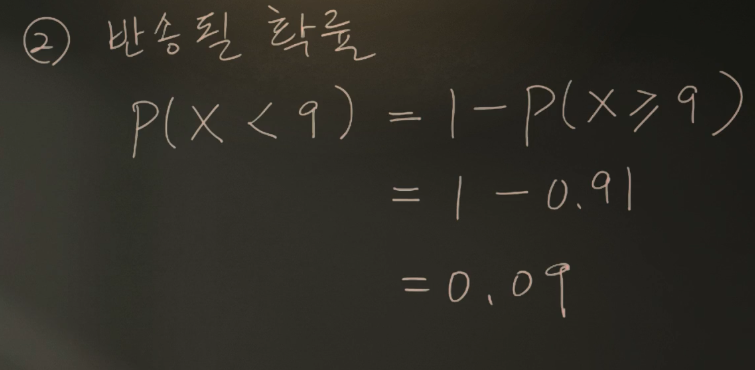 ② 반송될 확률
P(X < 9) = 1 - P(X ⩾ 9)
= 1 - 0.91
= 0.09